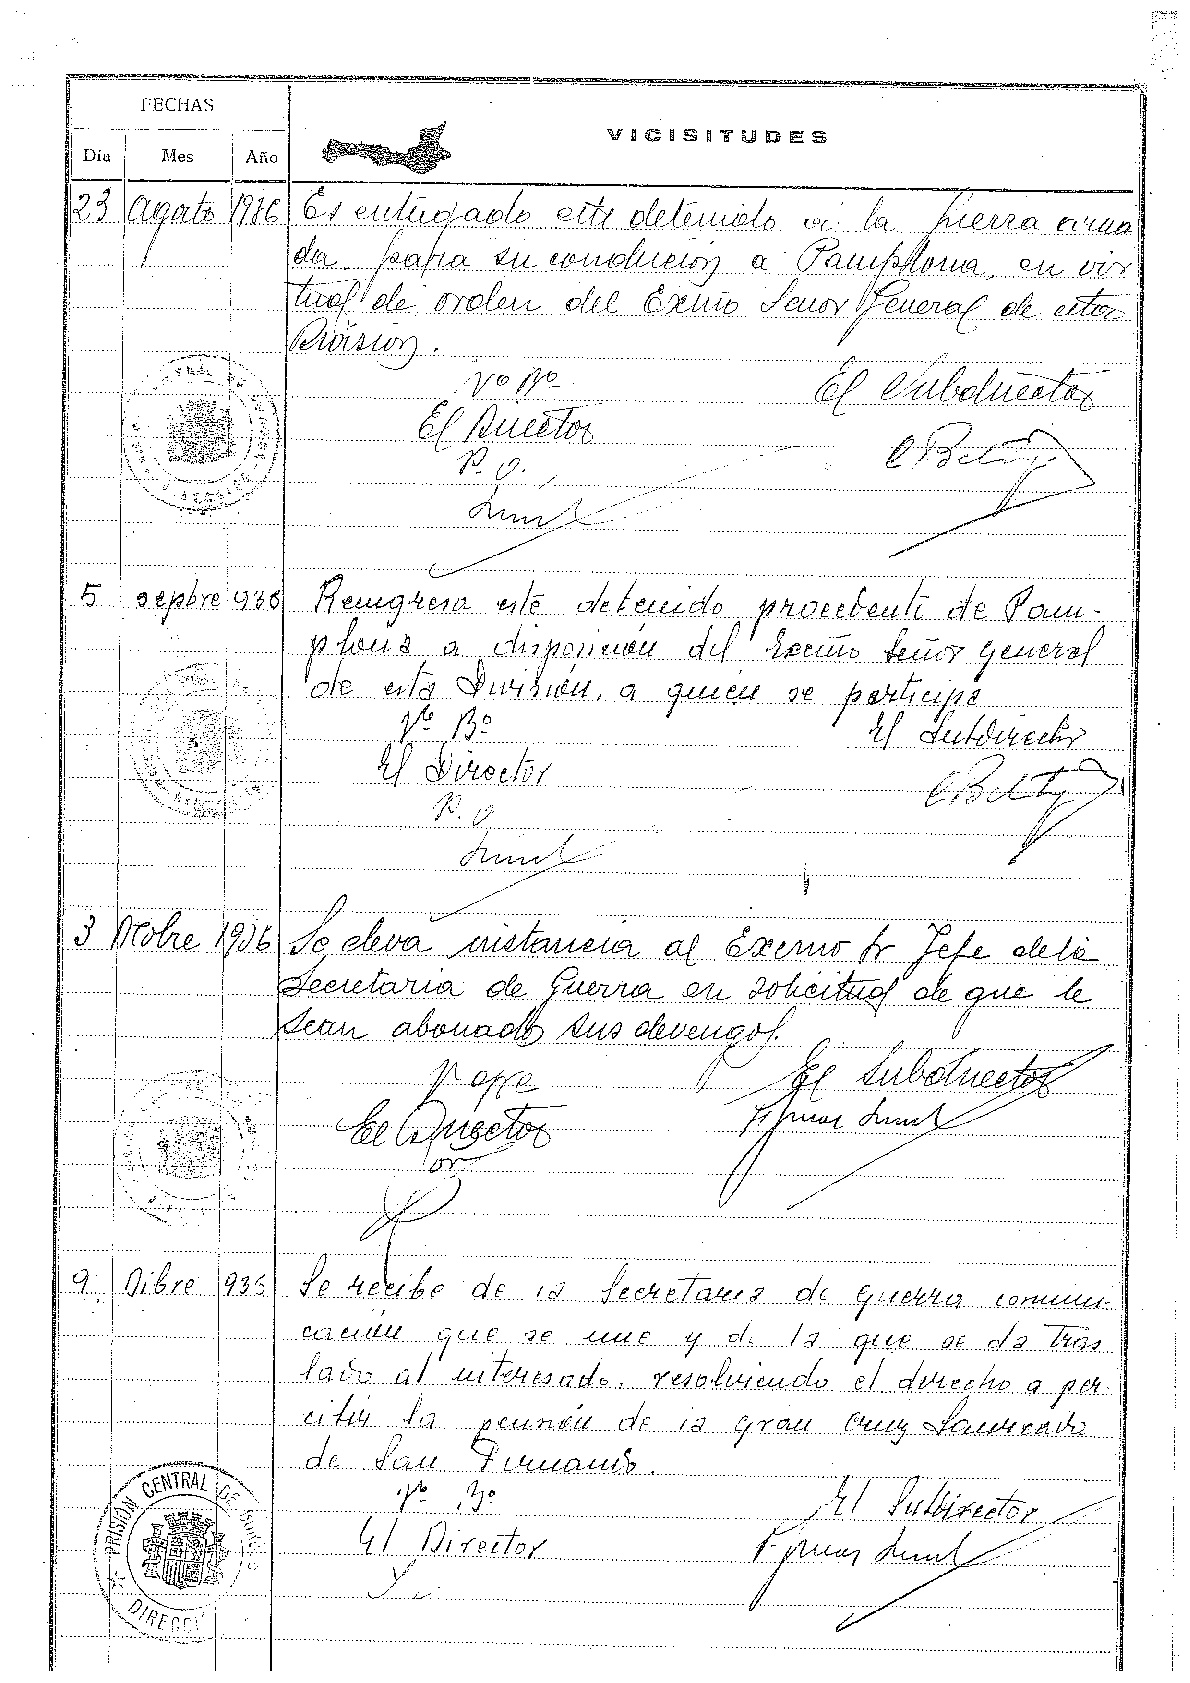 FECHAS
VICISITUDES
Día Mes Año
23 Agosto 1936 Es entregado este detenido a la fuerza arma
da para su conducción a Pamplona, en vir
tud de orden del Excmo Señor General de esta
División.
Vº Bº El Subdirector
El Director
P. O.
5 sepbre 936 Reingresa este detenido procedente de Pam-
plona a disposición del Excmo Señor General
de esta División, a quien se participa
Vº Bº El Subdirector
El Director
P. O.
3 Octbre 1936 Se eleva instancia al Excmo Sr Jefe de la
Secretaria de Guerra en solicitud de que le
sean abonado sus devengos.
El Subdirector
El Director
9 Dibre 936 Se recibe de la Secretaria de Guerra comuni-
cación que se une y de la que se da tras
lado al interesado, resolviendo el derecho a per-
cibir la pensión de la gran Cruz Laureada
de San Fernando.
Vº Bº El Subdirector
El Director
PRISIÓN CENTRAL DE